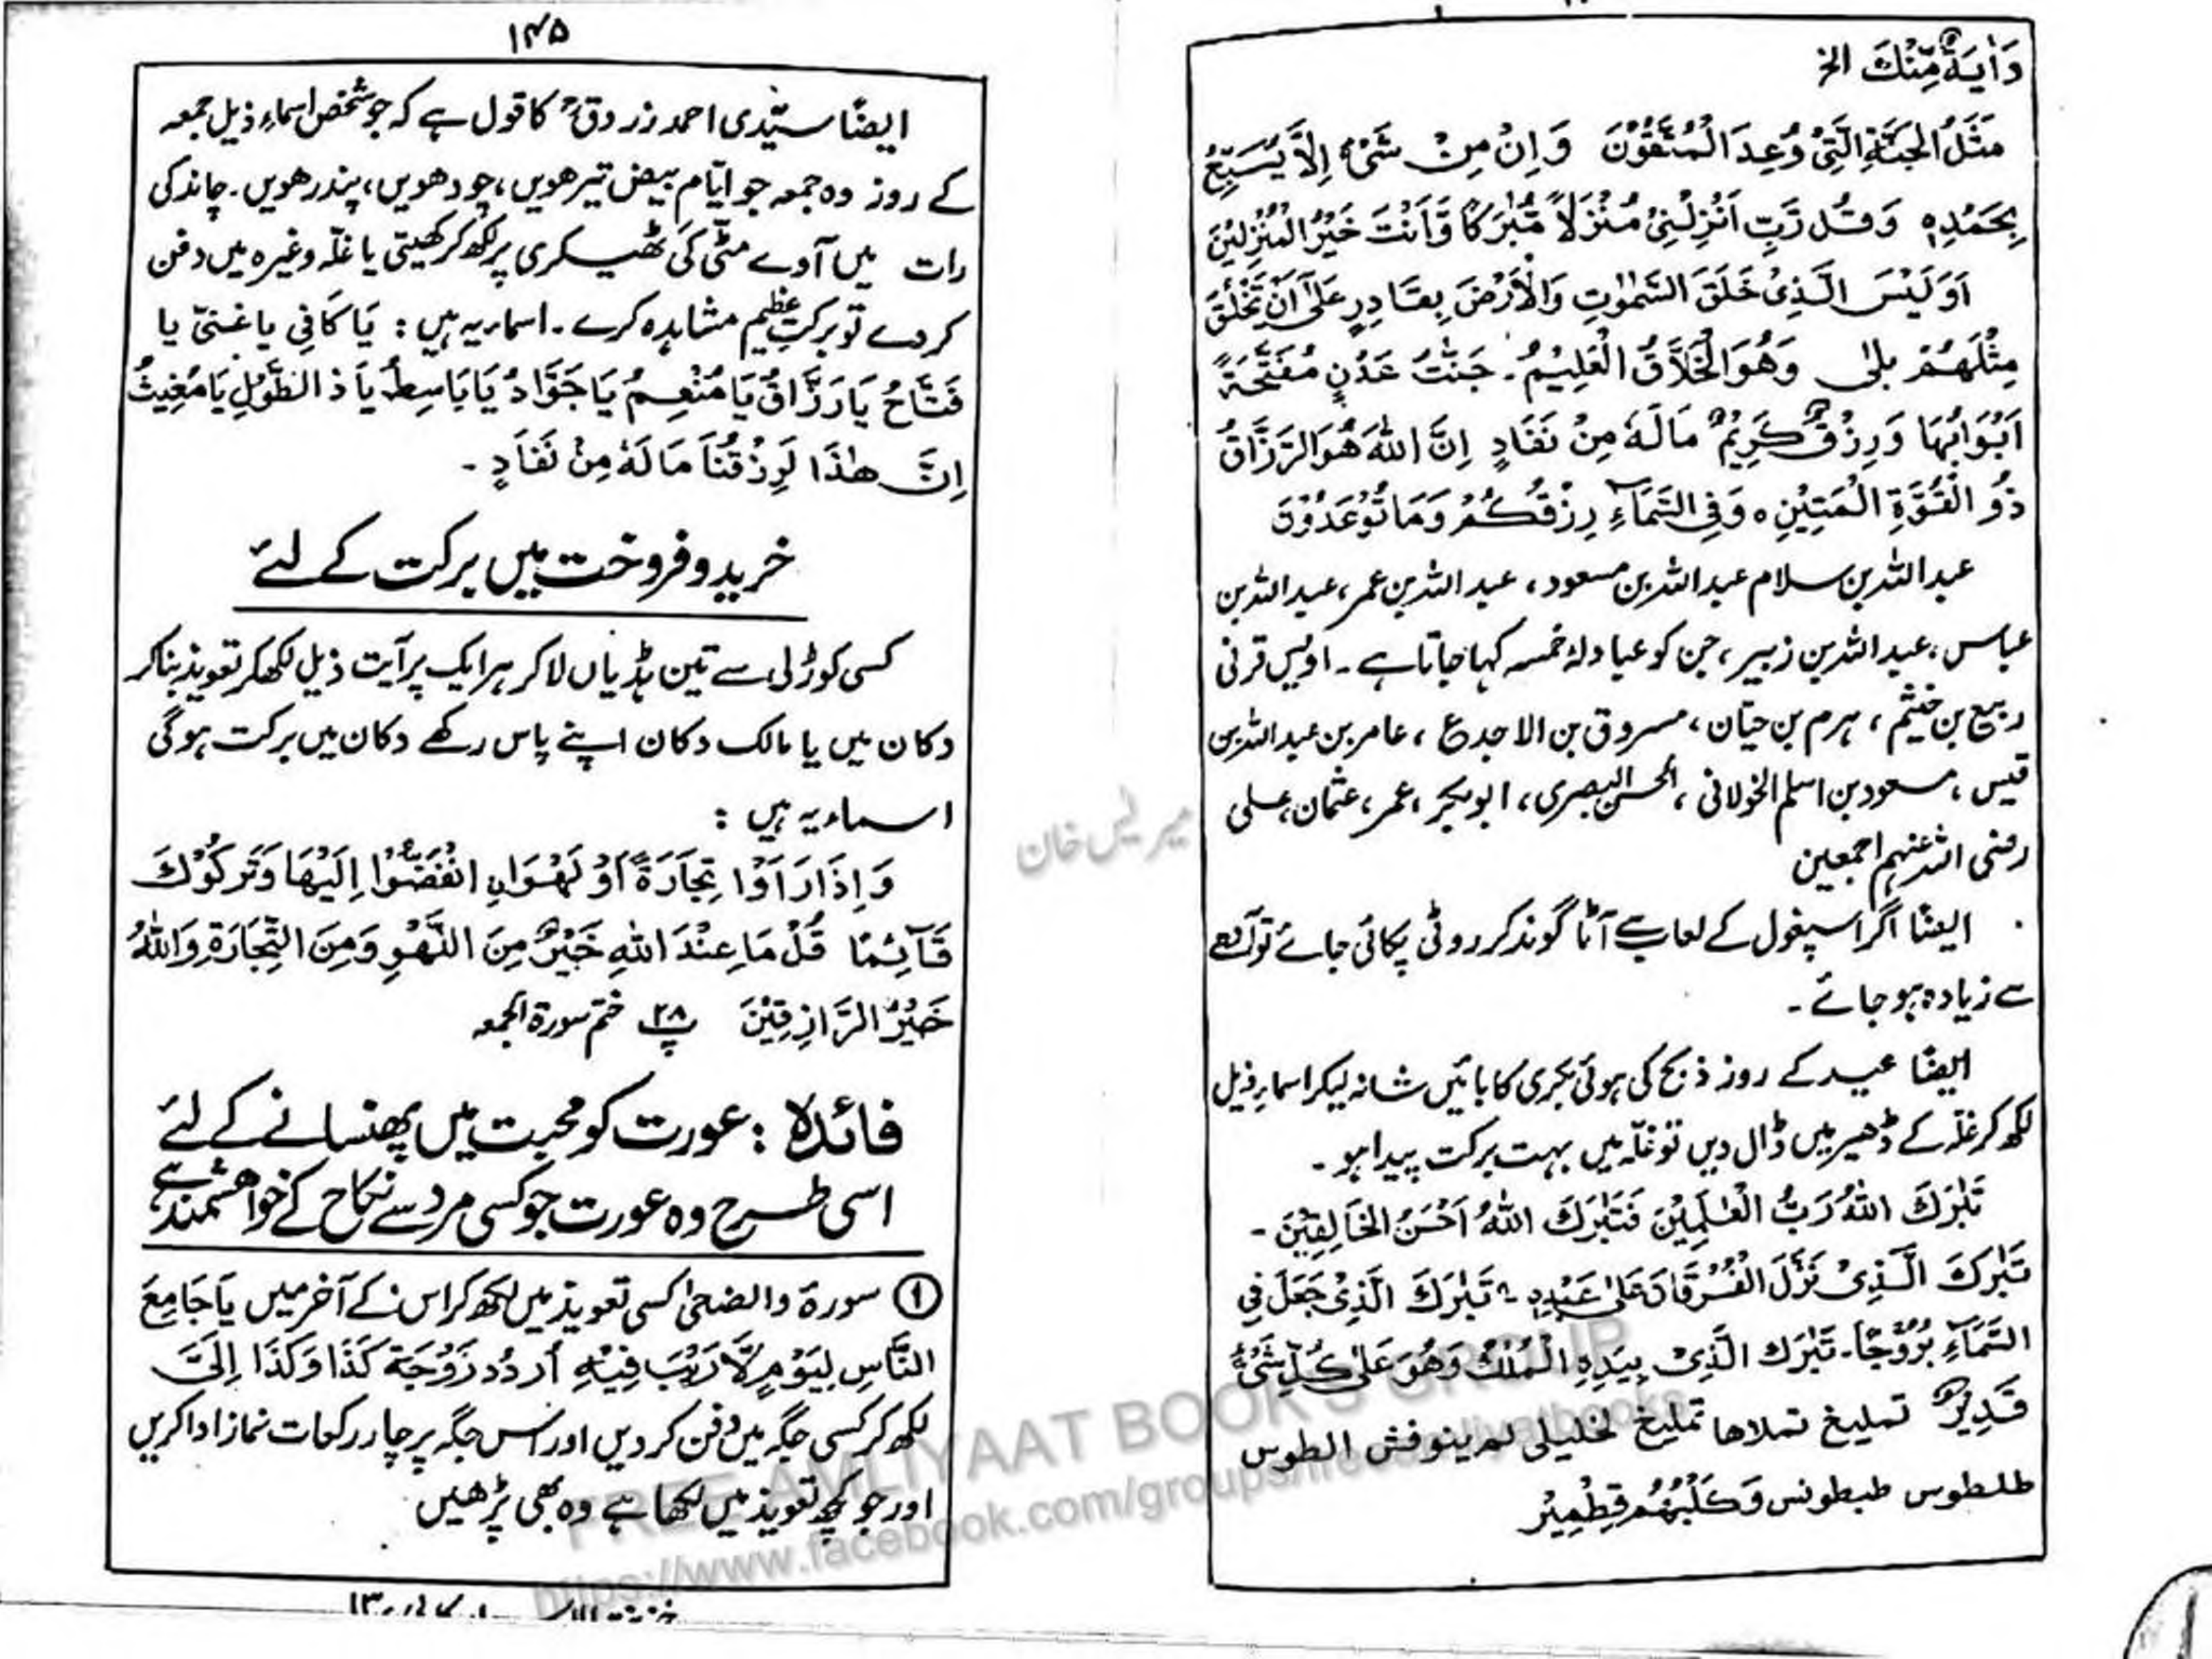 وَاٰيَةً مِّنْكَ الخ
مَثَلُ الْجَنَّةِ الَّتِيْ وُعِدَ الْمُتَّقُوْنَ وَاِنْ مِنْ شَيْءٍ اِلَّا يُسَبِّحُ
بِحَمْدِهٖ وَقُلْ رَّبِّ اَنْزِلْنِيْ مُنْزَلًا مُّبٰرَكًا وَّاَنْتَ خَيْرُ الْمُنْزِلِيْنَ
اَوَلَيْسَ الَّذِيْ خَلَقَ السَّمٰوٰتِ وَالْاَرْضَ بِقَادِرٍ عَلٰٓى اَنْ يَّخْلُقَ
مِثْلَهُمْ بلٰى وَهُوَ الْخَلَّاقُ الْعَلِيْمُ ۔ جَنّٰتُ عَدْنٍ مُفَتَّحَةً
اَبْوَابُهَا وَرِزْقٌ كَرِيْمٌ مَالَهٗ مِنْ نَفَادٍ اِنَّ اللّٰهَ هُوَ الرَّزَّاقُ
ذُو الْقُوَّةِ الْمَتِيْنِ ○ وَفِي السَّمَآءِ رِزْقُكُمْ وَمَا تُوْعَدُوْنَ
عبداللہ بن سلام عبداللہ بن مسعود، عبداللہ بن عمر، عبداللہ بن
عباس، عبداللہ بن زبیر، جن کو عبادلۂ خمسہ کہا جاتا ہے۔ اویس قرنی
ربیع بن خثیم، ہرم بن حیّان، مسروق بن الاجدع، عامر بن عبداللہ بن
قیس، مسعود بن اسلم الخولانی، الحسن البصری، ابوبکر، عمر، عثمان، علی
رضی اللہ عنہم اجمعین
ایضًا اگر اسپغول کے لعاب سے آٹا گوندکر روٹی پکائی جائے تو آدھے
سے زیادہ ہو جائے۔
ایضًا عید کے روز ذبح کی ہوئی بکری کا بائیں شانہ لیکر اسماء ذیل
لکھ کر غلّہ کے ڈھیر میں ڈال دیں تو غلّہ میں بہت برکت پیدا ہو۔
تَبٰرَكَ اللّٰهُ رَبُّ الْعٰلَمِيْنَ فَتَبٰرَكَ اللّٰهُ اَحْسَنُ الْخَالِقِيْنَ ۔
تَبٰرَكَ الَّذِيْ نَزَّلَ الْفُرْقَانَ عَلٰى عَبْدِهٖ ۔ تَبٰرَكَ الَّذِيْ جَعَلَ فِي
السَّمَآءِ بُرُوْجًا ۔ تَبٰرَكَ الَّذِيْ بِيَدِهِ الْمُلْكُ وَهُوَ عَلٰى كُلِّ شَيْءٍ
قَدِيْرٌ تمليغ تملاها تمليخ لخليلى لمرينوفش الطوس
طلطوس طبطونس وَكَلْبُهُمْ قِطْمِيْر
۱۴۵
ایضًا سیّدی احمد زروقؒ کا قول ہے کہ جو شخص اسماءِ ذیل جمعہ
کے روز وہ جمعہ جو ایّام بیض تیرھویں، چودھویں، پندرھویں۔ چاند کی
رات میں آوے مٹّی کی ٹھیکری پر لکھ کر کھیتی یا غلّہ وغیرہ میں دفن
کر دے تو برکتِ عظیم مشاہدہ کرے۔ اسماء یہ ہیں: يَا كَافِي يا غنيّ يا
فَتَّاحُ يَا رَزَّاقُ يَا مُنْعِمُ يَا جَوَّادُ يَا بَاسِطُ يَا ذَالطَّوْلِ يَا مُغِيثُ
اِنَّ هٰذَا لَرِزْقُنَا مَالَهٗ مِنْ نَفَادٍ ۔
خرید و فروخت میں برکت کے لئے
کسی کوڑلی سے تین ہڈیاں لاکر ہر ایک پر آیت ذیل لکھ کر تعویذ بناکر
دکان میں یا مالک دکان اپنے پاس رکھے دکان میں برکت ہوگی
اسماء یہ ہیں:
وَاِذَا رَاَوْا تِجَارَةً اَوْ لَهْوَا ۨ انْفَضُّوْا اِلَيْهَا وَتَرَكُوْكَ
قَآئِمًا قُلْ مَا عِنْدَ اللّٰهِ خَيْرٌ مِنَ اللَّهْوِ وَمِنَ التِّجَارَةِ وَاللّٰهُ
خَيْرُ الرَّازِقِيْنَ پ ۲۸ ختم سورۃ الجمعہ
فائدہ: عورت کو محبت میں پھنسانے کے لئے
اسی طرح وہ عورت جو کسی مرد سے نکاح کے خواھشمند ہے
① سورۃ والضحیٰ کسی تعویذ میں لکھ کر اس کے آخر میں يَا جَامِعَ
النَّاسِ لِيَوْمٍ لَّا رَيْبَ فِيْهِ اُرْدُدْ زَوْجَةَ كَذَا وَكَذَا اِلَىَّ
لکھ کر کسی جگہ میں دفن کر دیں اور اس جگہ پر چار رکعات نماز ادا کریں
اور جو کچھ تعویذ میں لکھا ہے وہ بھی پڑھیں
خان
FREE AMLIYAAT BOOKS GROUP
https://www.facebook.com/groups/freeamliyatbooks